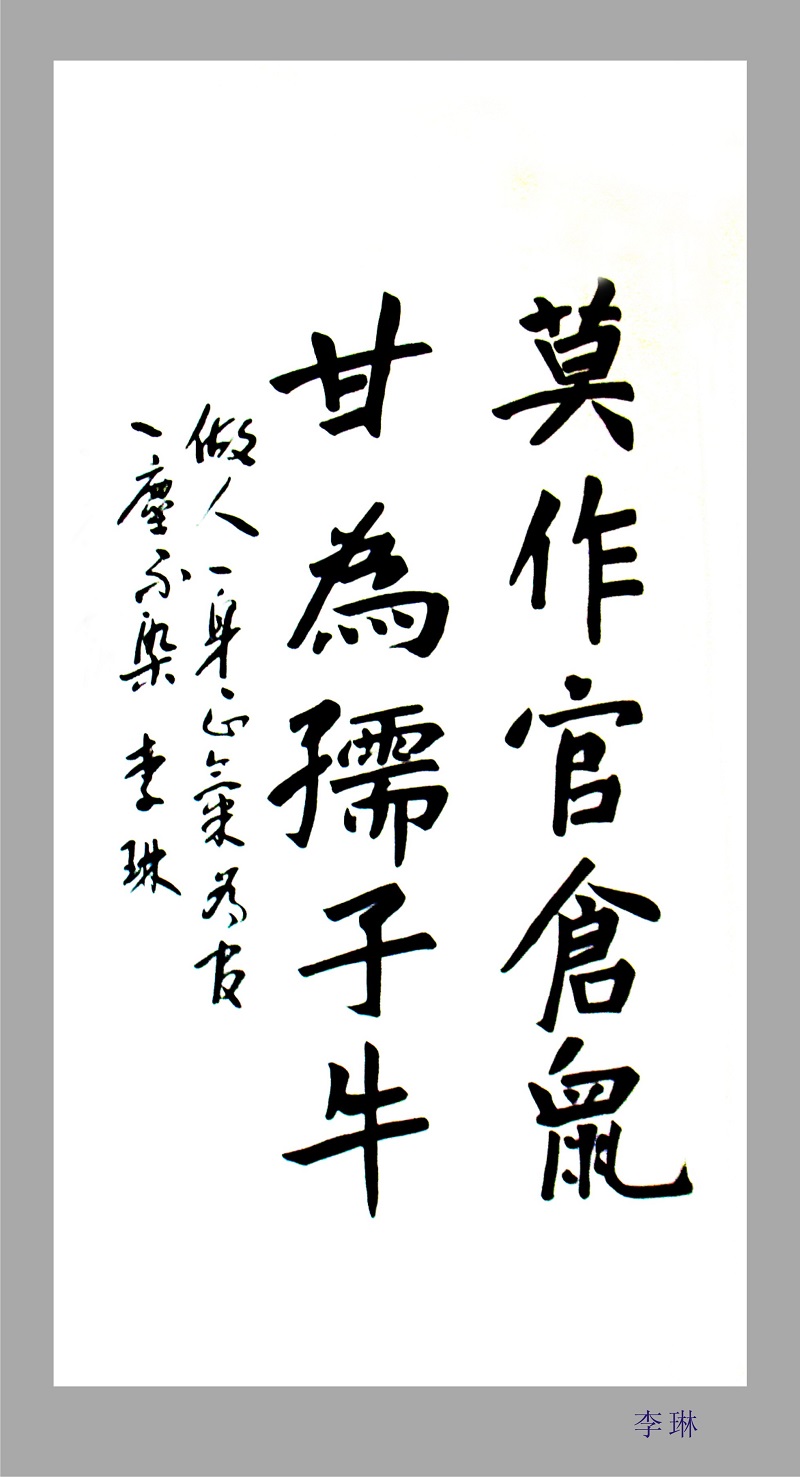 莫作官倉鼠
甘為孺子牛
做人一身正氣為官
一塵不染 李琳
李琳